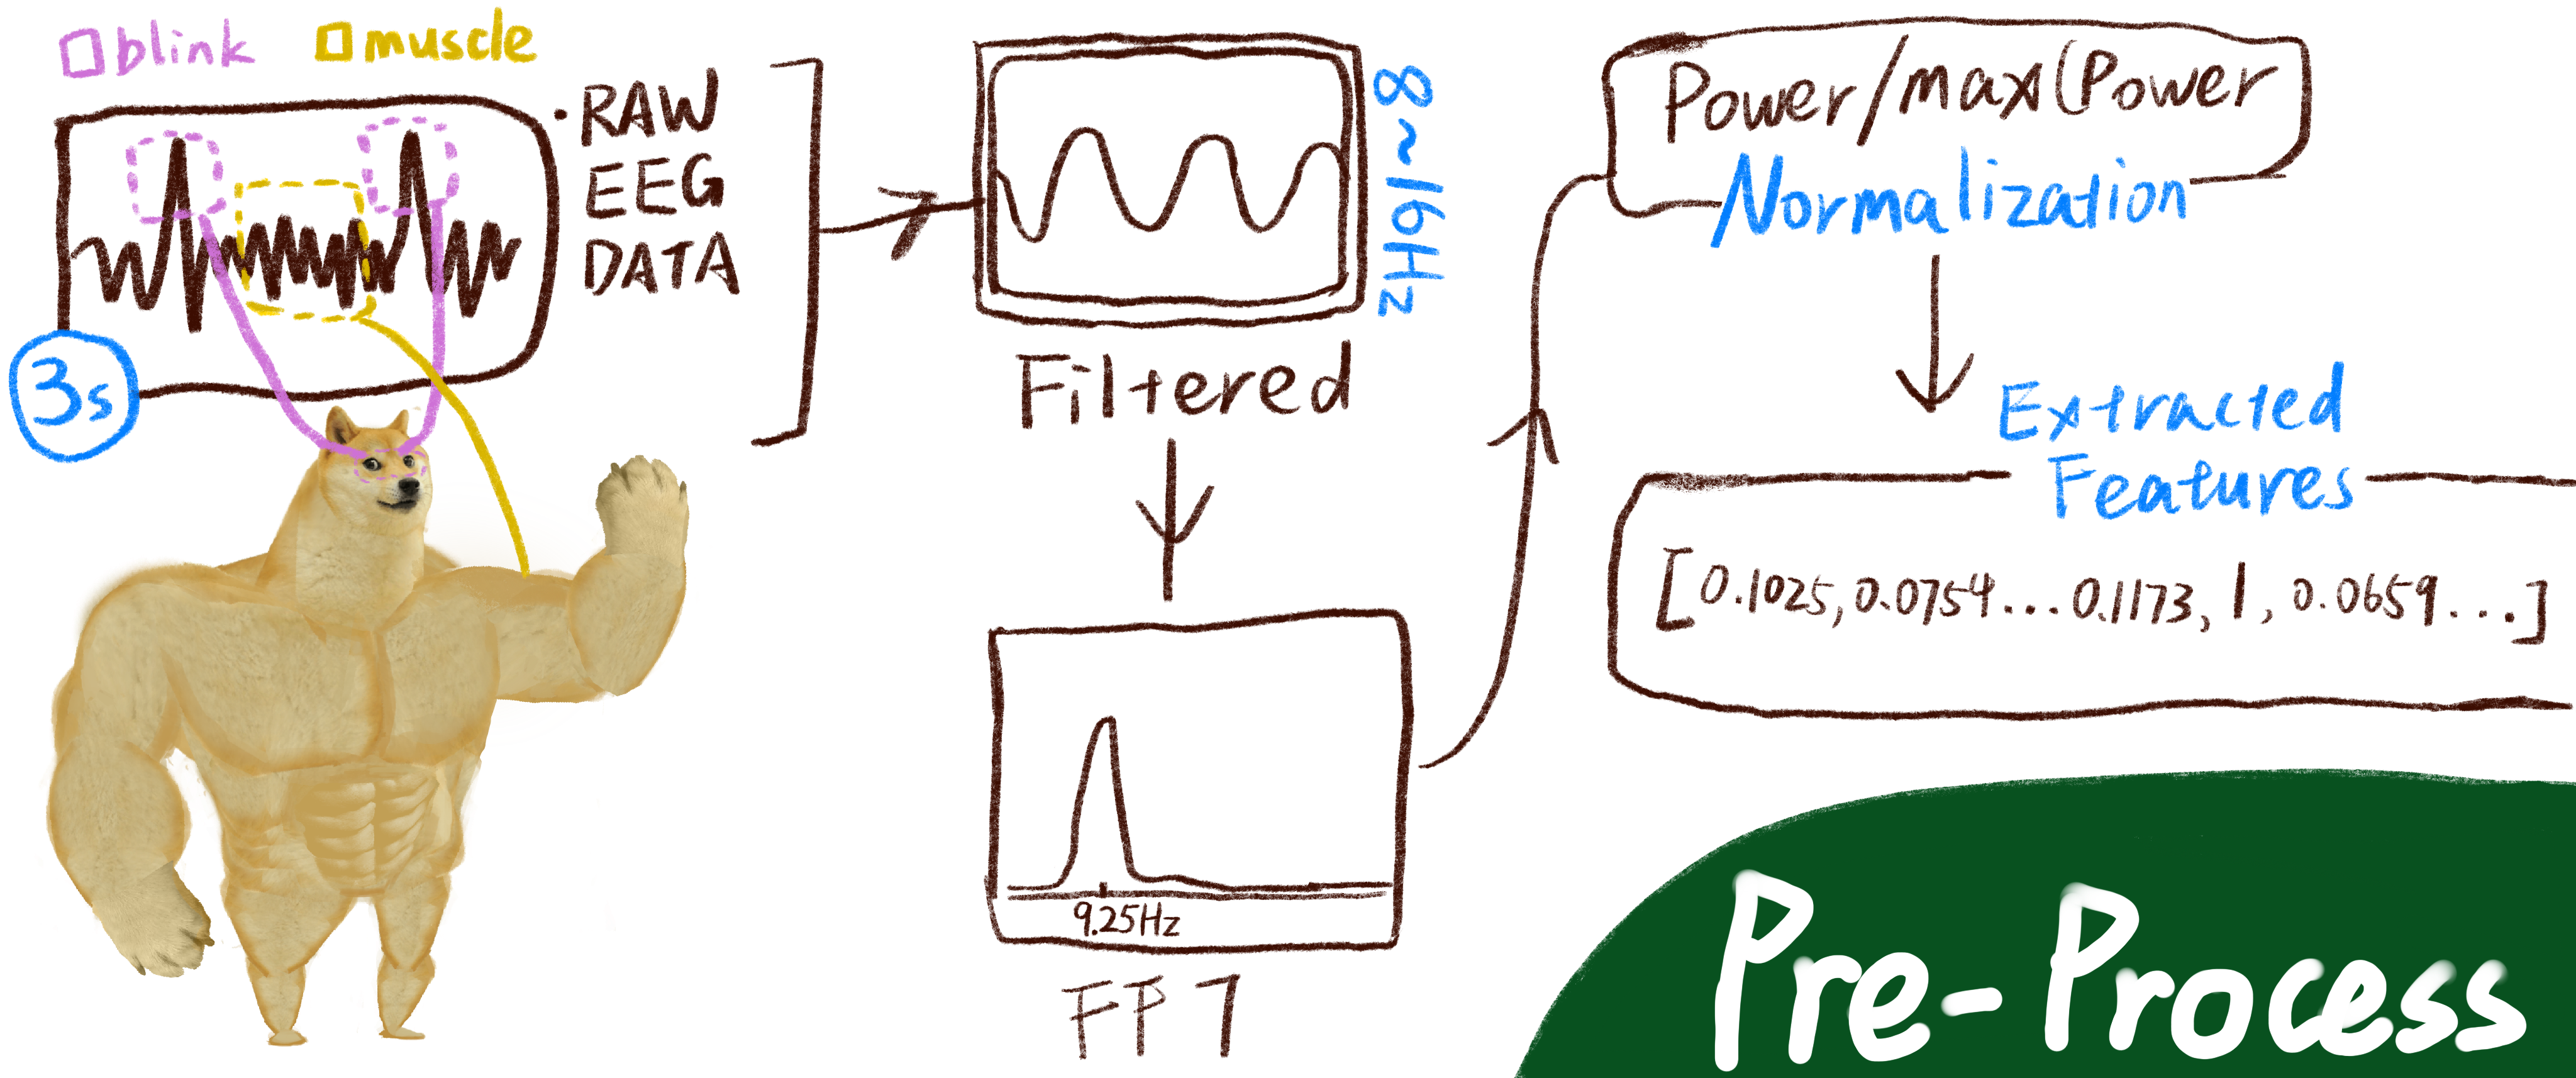 blink muscle
·RAW
EEG
DATA
3s
8~16Hz
Filtered
9.25Hz
FP7
Power/max(Power
Normalization
Extracted
Features
[0.1025, 0.0754...0.1173, 1, 0.0659...]
Pre-Process